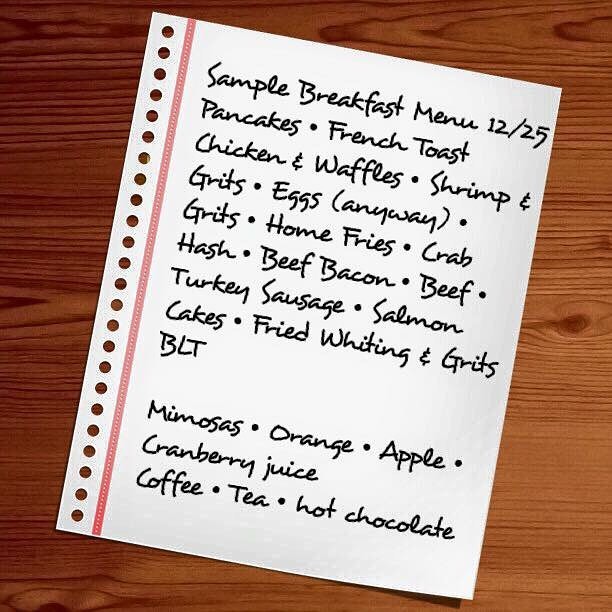 Sample Breakfast Menu 12/25
Pancakes • French Toast
Chicken & Waffles • Shrimp &
Grits • Eggs (anyway) •
Grits • Home Fries • Crab
Hash • Beef Bacon • Beef •
Turkey Sausage • Salmon
Cakes • Fried Whiting & Grits
BLT
Mimosas • Orange • Apple •
Cranberry juice
Coffee • Tea • hot chocolate